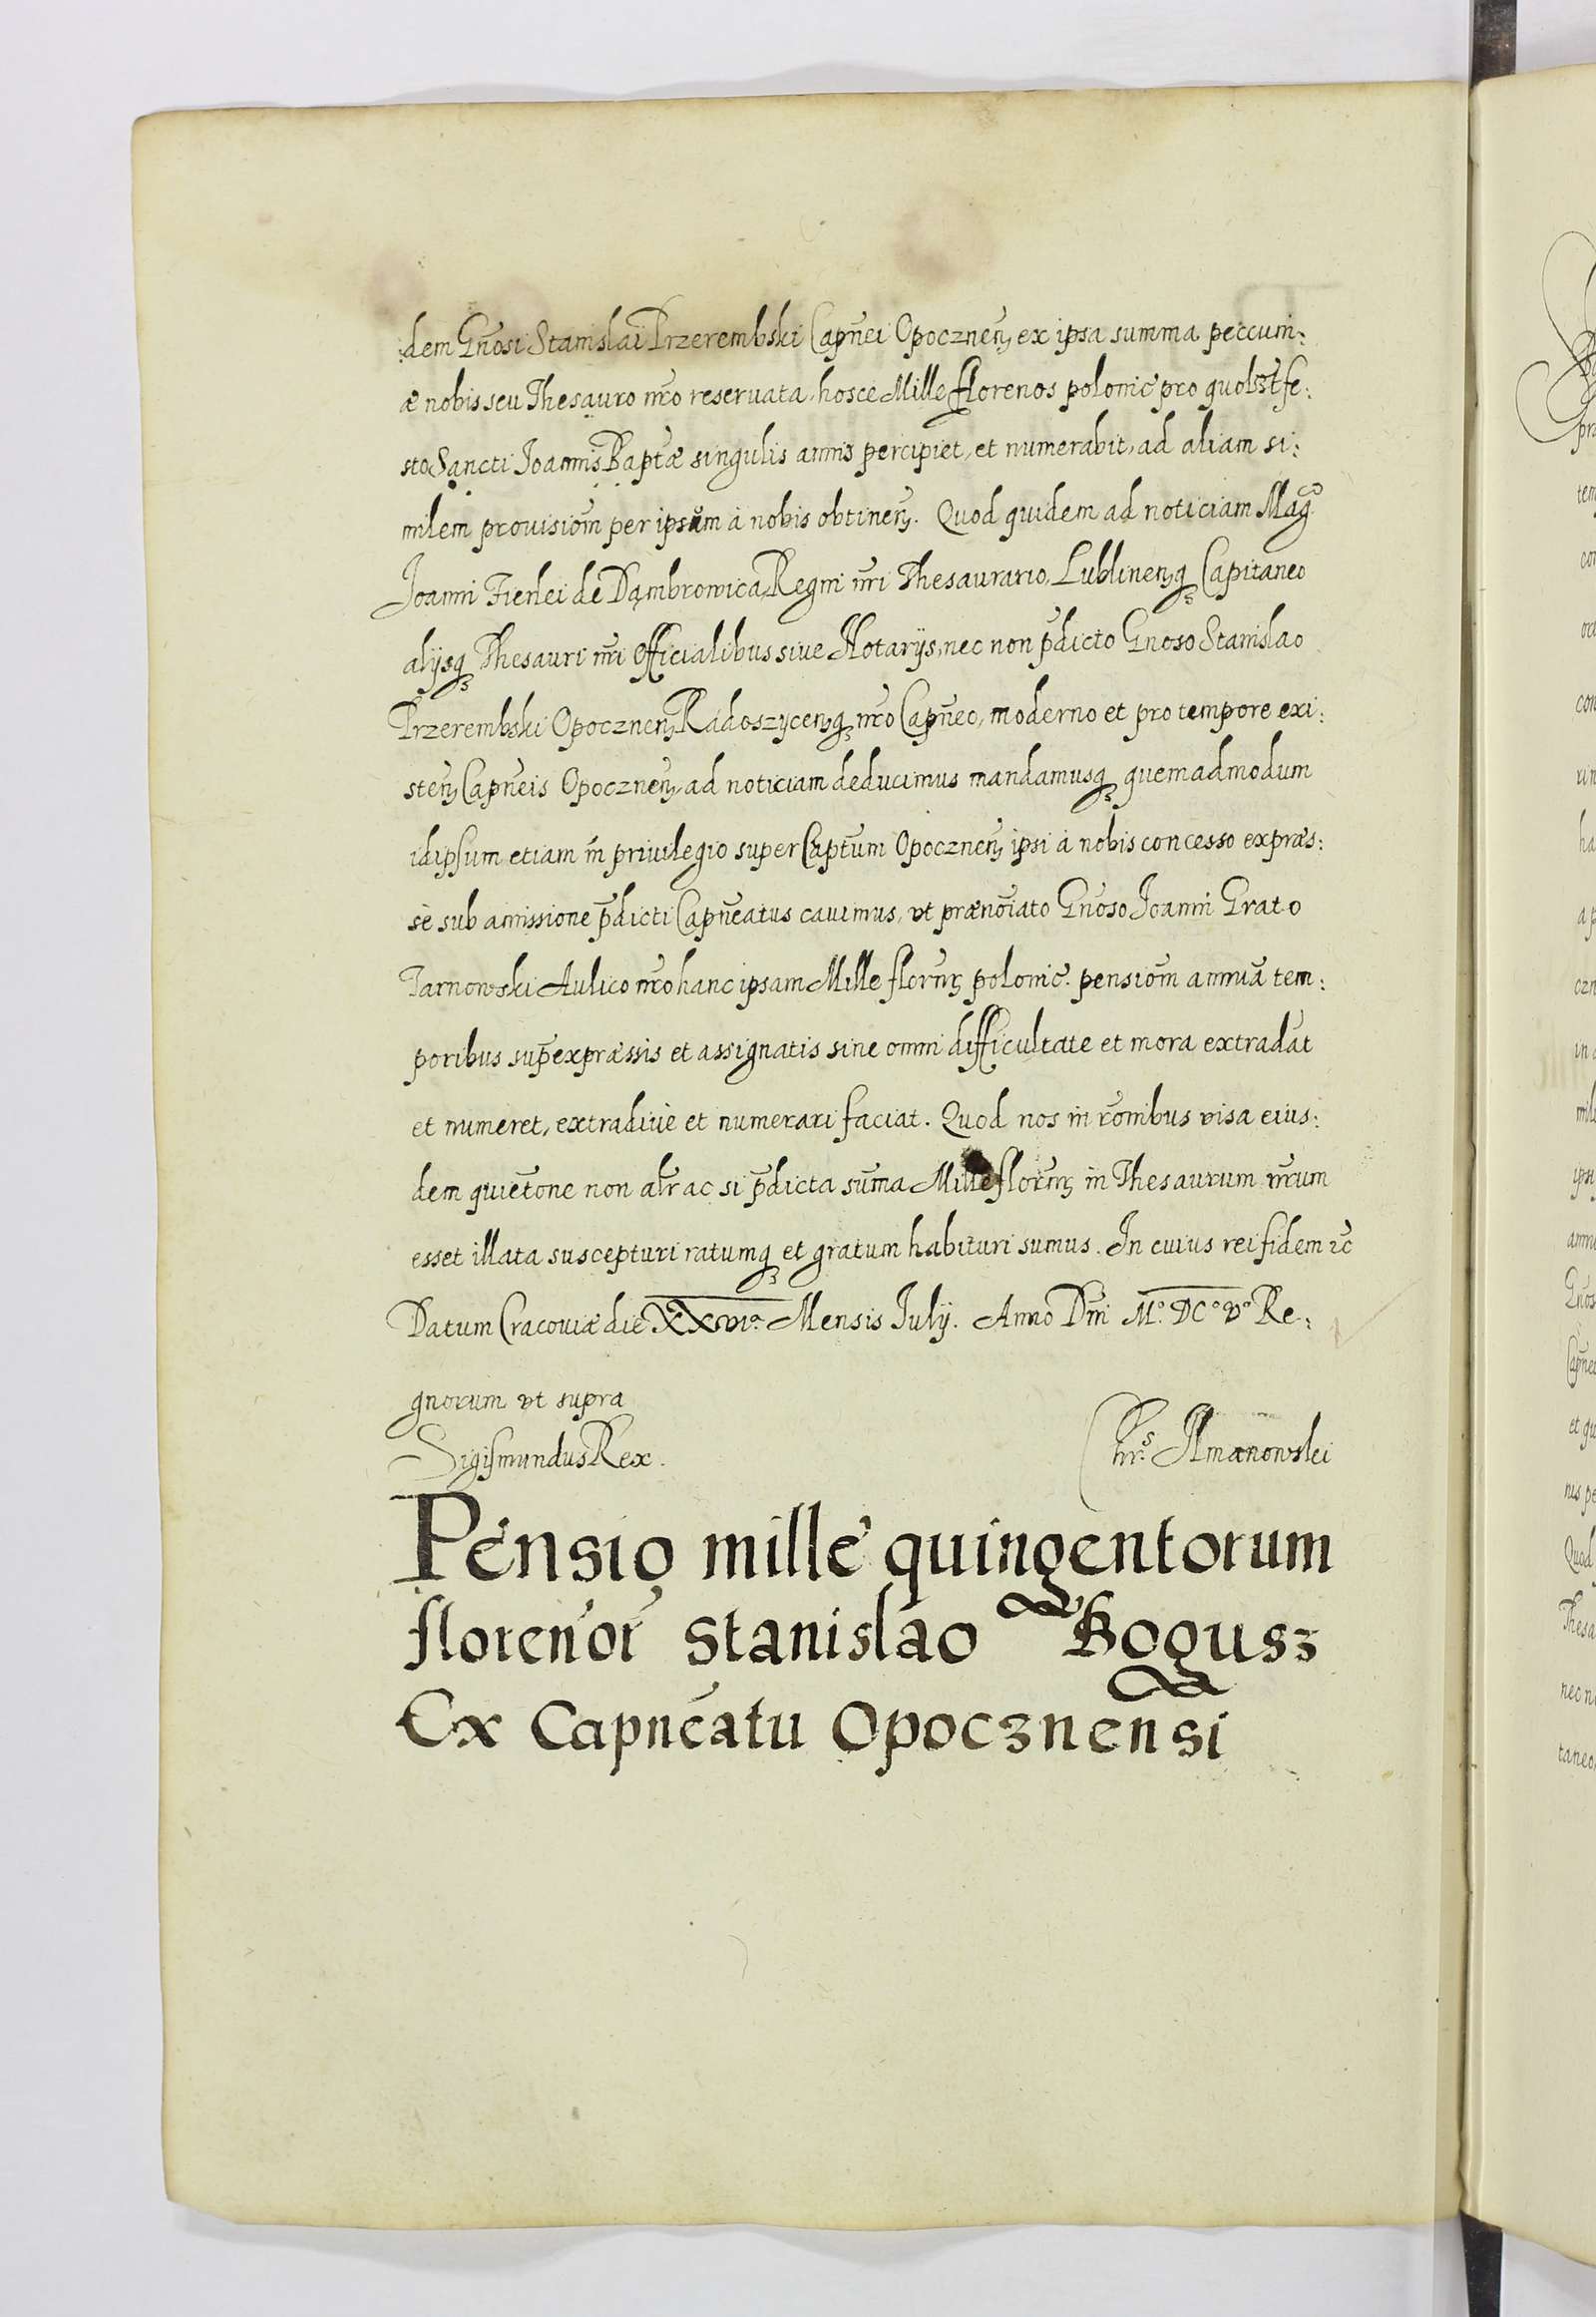 dem Gn̄osi Stanislai Przerembski Capn̄ei Opocznen̄ ex ipsa summa peccuni:
æ nobis seu Thesauro nr̄o reseruata, hosce Mille florenos polonic̄ pro quolib̄t fe:
sto Sancti Joannis Bapt̄æ singulis annis percipiet, et numerabit, ad aliam si:
milem prouisiōm per ipsum à nobis obtinen̄. Quod quidem ad noticiam Mag̃co
Joanni Firlei de Dąmbrowica Regni nr̄i Thesaurario, Lublinen̄q Capitaneo
alijsq Thesauri nr̄i officialibus siue Notarijs, nec non p̄dicto Gn̄oso Stanislao
Przerembski Opocznen̄ Radoszycen̄q nr̄o Capn̄eo, moderno et pro tempore exi:
sten̄ Capn̄eis Opocznen̄, ad noticiam deducimus mandamusq quemadmodum
idipsum etiam in priuilegio super Capt̄um Opocznen̄ ipsi à nobis concesso expræs:
sè sub amissione p̄dicti Capn̄eatus cauimus, vt prænōiato Gn̄oso Joanni Grato
Tarnowski Aulico nr̄o hanc ipsam Mille floren̄ polonic̄. pensiōm annuā tem:
poribus sup̄expræssis et assignatis sine omni difficultate et mora extradat
et numeret, extradiue et numerari faciat. Quod nos in rōnibus visa eius:
dem quiet̄one non alr̄ ac si p̄dicta sum̄a Mille floren̄ in Thesaurum nr̄um
esset illata suscepturi ratumq et gratum habituri sumus. In cuius rei fidem ꝛc̄
Datum Cracouiæ die XXVIa. Mensis Julij. Anno Dn̄i Mo. DCo Vo Re:
gnorum vt supra
Sigismundus Rex.
Chrs. Ilmanowski
Pensio mille quingentorum
florenor̄ Stanislao Bogusz
Ex Capnēatu Opocznensi